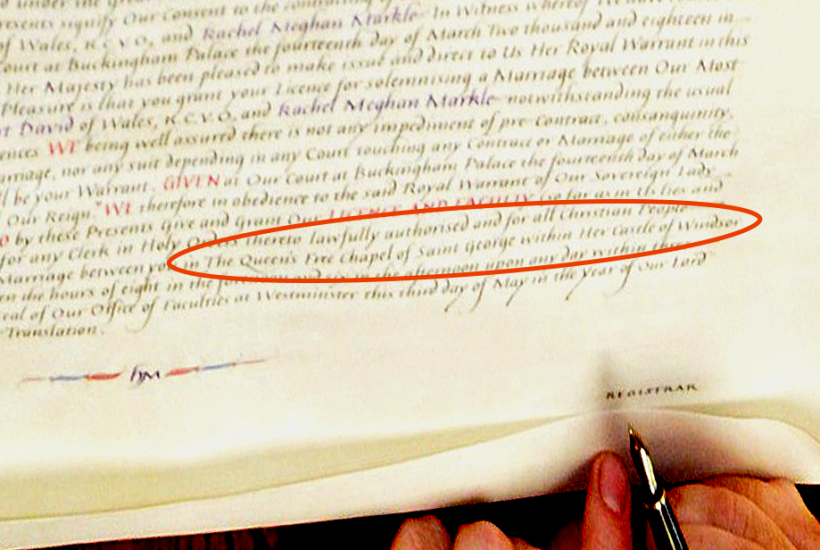 resents signify Our Consent to the contracting of
of Wales, K.C.V.O, and Rachel Meghan Markle In Witness whereof We have
ourt at Buckingham Palace the fourteenth day of March Two thousand and eighteen in
Her Majesty has been pleased to make issue and direct to Us Her Royal Warrant in this
Pleasure is that you grant your Licence for solemnising a Marriage between Our Most
rt David of Wales, K.C.V.O, and Rachel Meghan Markle notwithstanding the usual
ences WE being well assured there is not any impediment of pre-Contract, consanguinity,
rriage, nor any suit depending in any Court touching any Contract or Marriage of either the
ll be your Warrant. GIVEN at Our Court at Buckingham Palace the fourteenth day of March
Our Reign." WE therefore in obedience to the said Royal Warrant of Our Sovereign Lady
by these Presents Give and Grant Our LICENCE AND FACULTY so far as in Us lies and
for any Clerk in Holy Orders thereto lawfully authorised and for all Christian People
Marriage between you in The Queen's Free Chapel of Saint George within Her Castle of Windsor
en the hours of eight in the forenoon and six in the afternoon upon any day within three
eal of Our Office of Faculties at Westminster this third day of May in the Year of Our Lord
Translation.
REGISTRAR